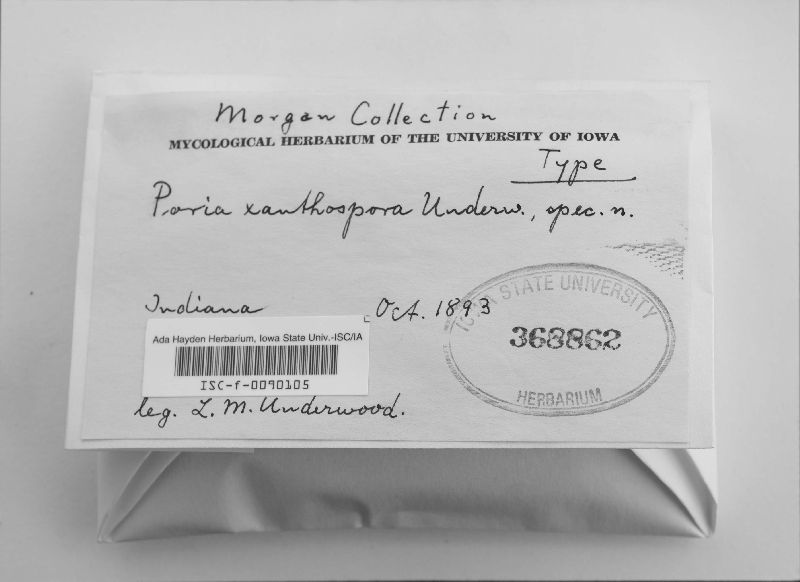 Morgan Collection
MYCOLOGICAL HERBARIUM OF THE UNIVERSITY OF IOWA
Type
Poria xanthospora Underw., spec. n.
Indiana
Oct. 1893
IOWA STATE UNIVERSITY
368862
HERBARIUM
Ada Hayden Herbarium, Iowa State Univ.-ISC/IA
ISC-f-0090105
leg. L. M. Underwood.